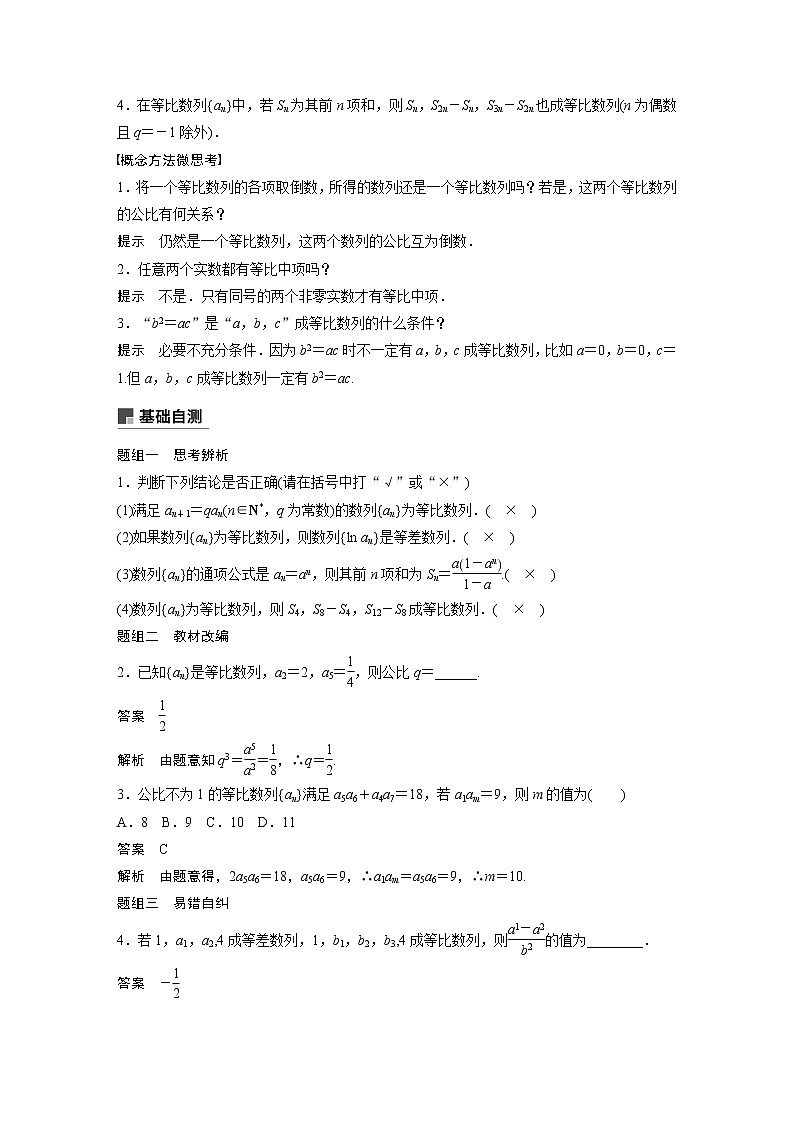 4．在等比数列{aₙ}中，若 Sₙ为其前 n 项和，则 Sₙ，S₂ₙ－Sₙ，S₃ₙ－S₂ₙ也成等比数列(n 为偶数
且 q＝－1 除外)．
[概念方法微思考]
1．将一个等比数列的各项取倒数，所得的数列还是一个等比数列吗？若是，这两个等比数列
的公比有何关系？
提示　仍然是一个等比数列，这两个数列的公比互为倒数．
2．任意两个实数都有等比中项吗？
提示　不是．只有同号的两个非零实数才有等比中项．
3．“b2＝ac”是“a，b，c”成等比数列的什么条件？
提示　必要不充分条件．因为 b2＝ac 时不一定有 a，b，c 成等比数列，比如 a＝0，b＝0，c＝
1.但 a，b，c 成等比数列一定有 b2＝ac.
基础自测
题组一　思考辨析
1．判断下列结论是否正确(请在括号中打“√”或“×”)
(1)满足 aₙ₊₁＝qaₙ(n∈N*，q 为常数)的数列{aₙ}为等比数列．(　×　)
(2)如果数列{aₙ}为等比数列，则数列{ln aₙ}是等差数列．(　×　)
(3)数列{aₙ}的通项公式是 aₙ＝aⁿ，则其前 n 项和为 Sₙ＝a(1－aⁿ)/1－a.(　×　)
(4)数列{aₙ}为等比数列，则 S₄，S₈－S₄，S₁₂－S₈成等比数列．(　×　)
题组二　教材改编
2．已知{aₙ}是等比数列，a₂＝2，a₅＝1/4，则公比 q＝______.
答案　1/2
解析　由题意知 q³＝a5/a2＝1/8，∴q＝1/2.
3．公比不为 1 的等比数列{aₙ}满足 a₅a₆＋a₄a₇＝18，若 a₁aₘ＝9，则 m 的值为(　　)
A．8　B．9　C．10　D．11
答案　C
解析　由题意得，2a₅a₆＝18，a₅a₆＝9，∴a₁aₘ＝a₅a₆＝9，∴m＝10.
题组三　易错自纠
4．若 1，a₁，a₂,4 成等差数列，1，b₁，b₂，b₃,4 成等比数列，则a1－a2/b2的值为________．
答案　－1/2